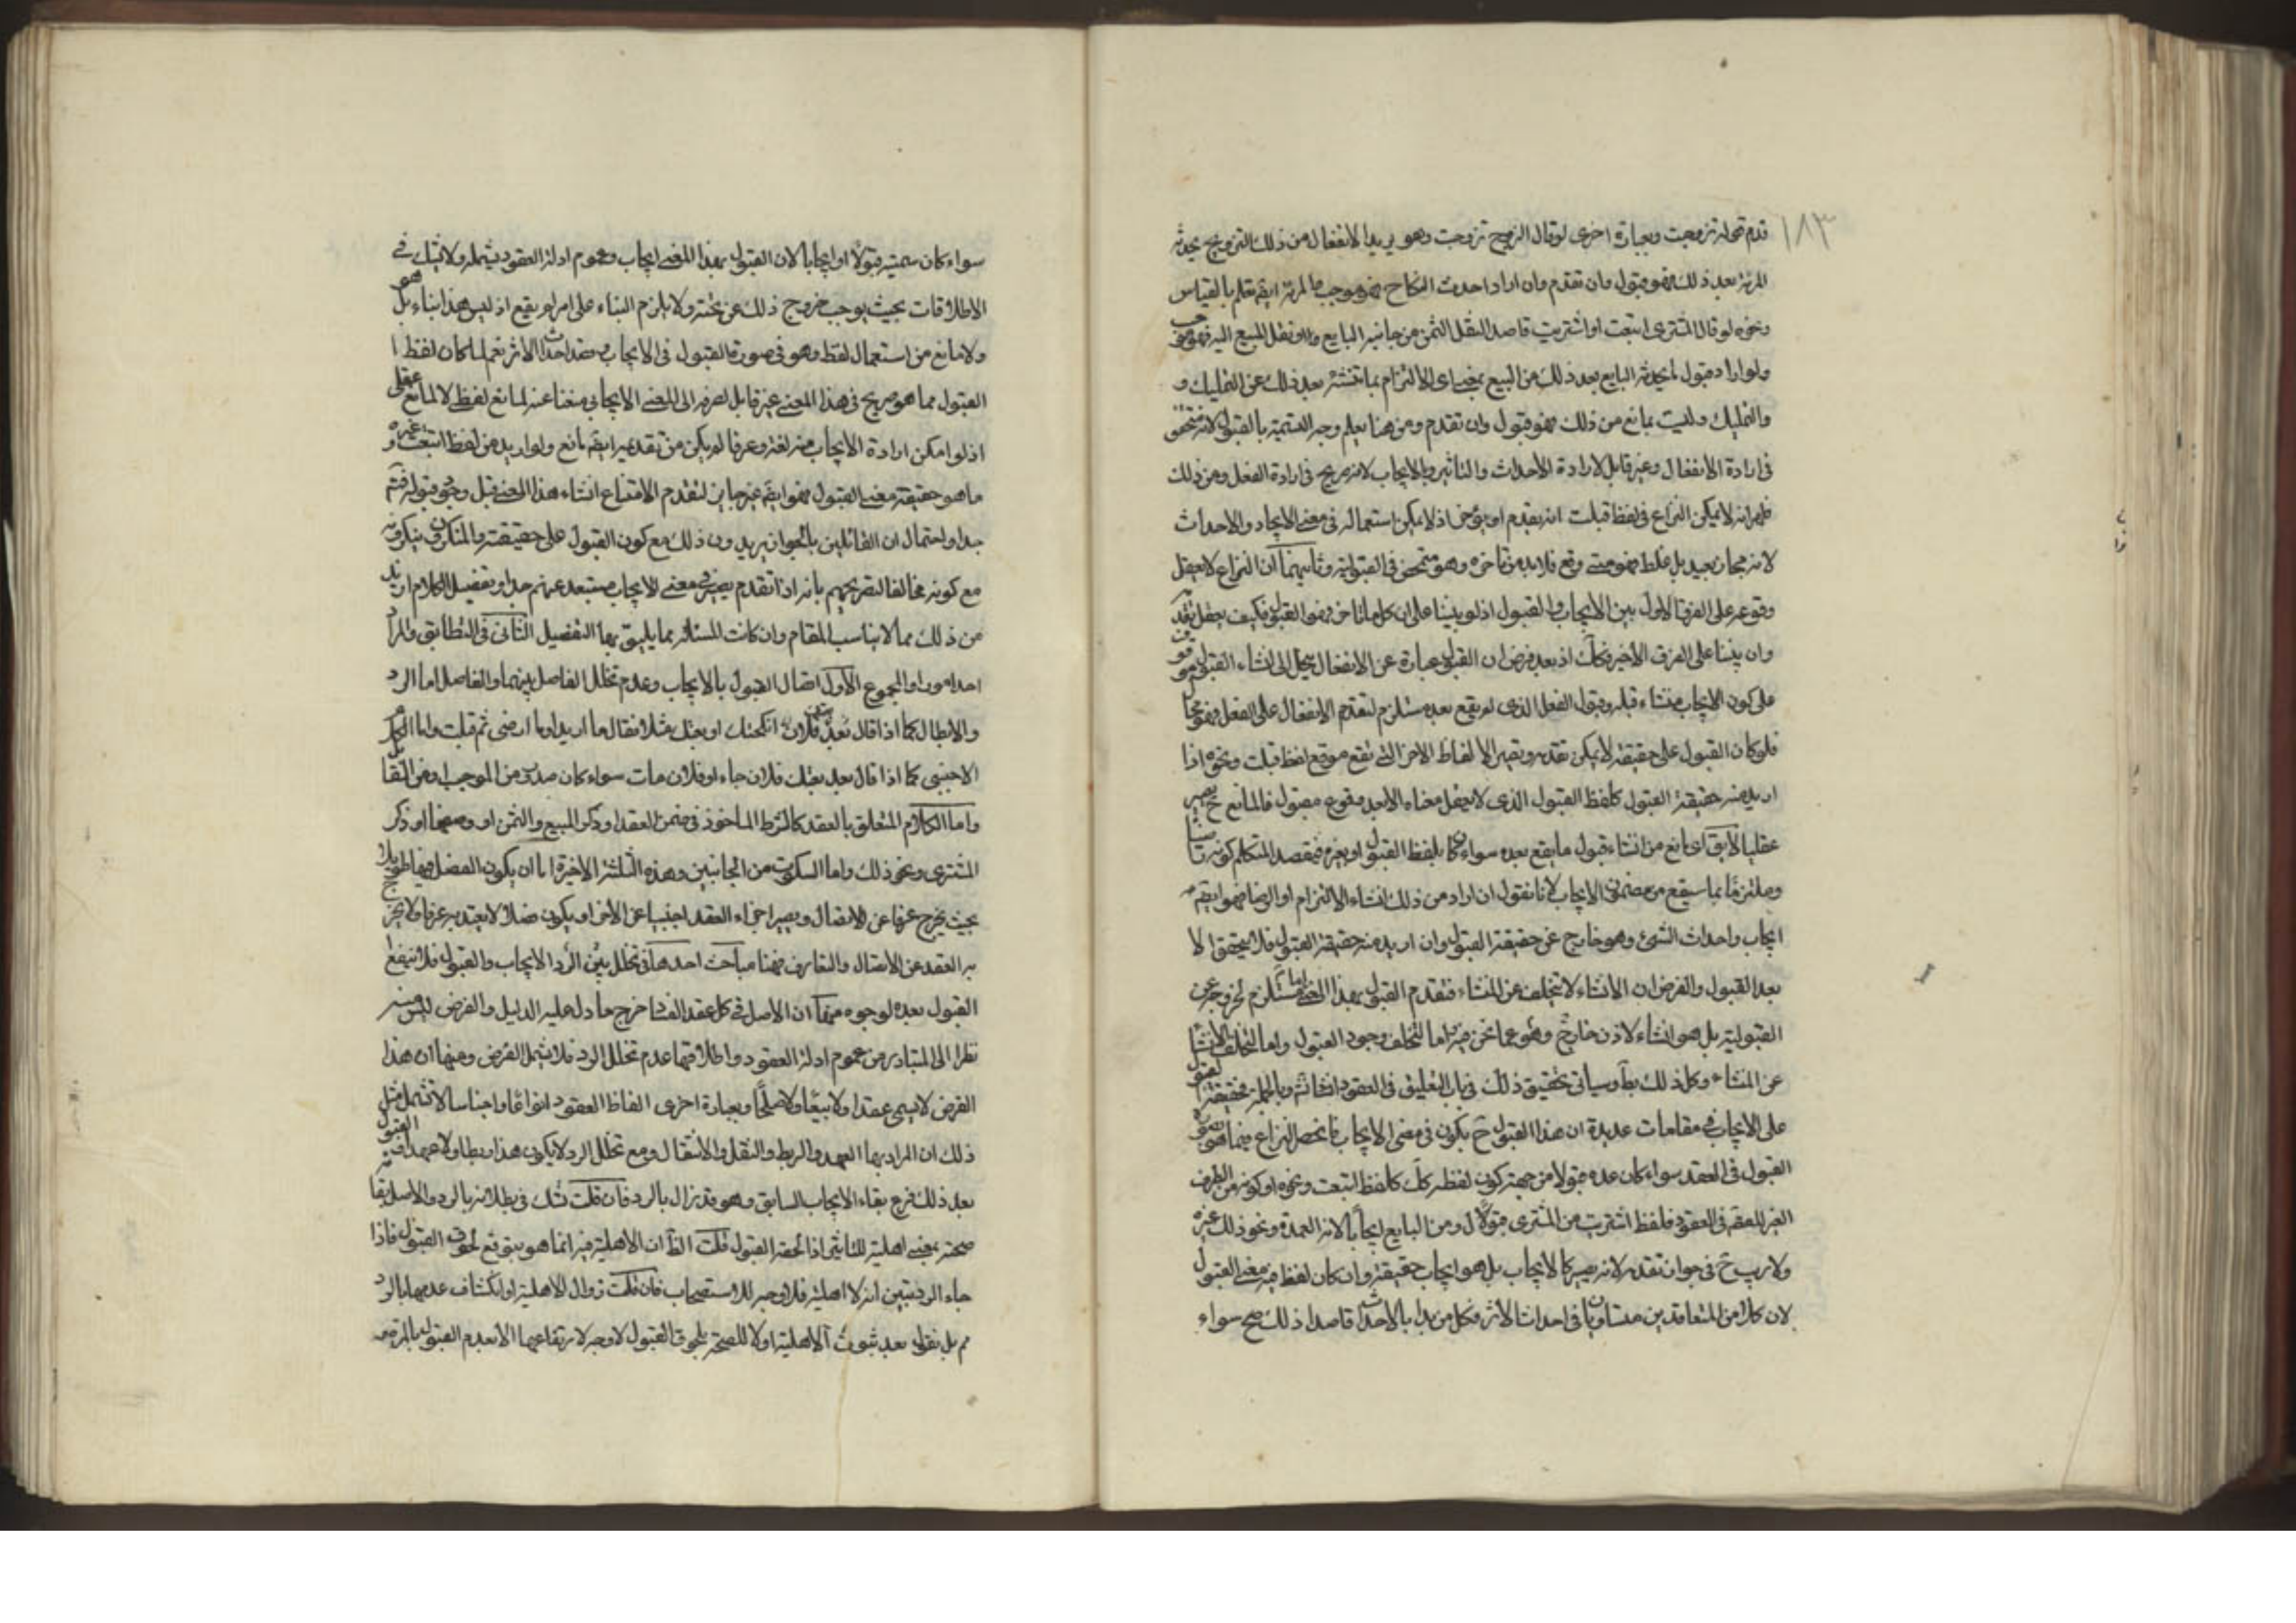 ١٨٣
قدم قوله تزوجت وبعبارة اخرى لو قال الزوج تزوجت وهو يريد الانفعال من ذلك التزويج يحدثه
المرئة بعد ذلك فهو قبول وان تقدم وان اراد احدث النكاح فهو موجب والمرئة ايضم تعلم بالقياس
ونحوه لو قال المشترى ابتعت او اشتريت قاصد النقل الثمن من جانبه البايع ونقل المبيع اليه فهو موجب
ولو اراد قبول لما يحدثه البايع بعد ذلك من البيع بمعنى اى الالتزام بما تنشئه بعد ذلك عن التمليك و
والتمليك وليت بمانع من ذلك فهو قبول وان تقدم ومن هنا يعلم وجه التسمية بالقبول لانه متحقق
فى ارادة الانفعال وغير قابل لارادة الاحداث والتاثير وبالايجاب لانه صريح فى ارادة الفعل ومن ذلك
ظهر انه لا يمكن النزاع فى لفظ قبلت انه يقدم او يؤخر اذ لا يمكن استعماله فى معنى الايجاد والاحداث
لانه مجاز بعيد بل غلط فهو متى وقع فلا بد من تاخره وهو متمحض فى القبولية وثانيهما ان النزاع لا يعقل
وقوعه على الفرق الاول بين الايجاب والقبول اذ لو بنينا على ان كل ما تاخر فهو القبول فكيف يعقل تقدمه
وان بنينا على الفرق الاخير فكك اذ بعد فرض ان القبول عبارة عن الانفعال يحتاج الى انشاء القبول موقوف
على كون الايجاب منشاء قبله وقبول الفعل الذى لم يقع بعد مستلزم لتقدم الانفعال على الفعل وهو محال
فلو كان القبول على حقيقته لا يمكن تقديمه وتصير الالفاظ الاخر التى تقع موقع لفظ قبلت ونحوه اذا
اريد منه حقيقة القبول كلفظ القبول الذى لا يعقل معناه الا بعد وقوع مقبول فالمانع ح يصير
عقليا لا يق اى مانع من انشاء قبول ما يقع بعده سواء كان بلفظ القبول او بغيره فيقصد المتكلم كونه راضيا
وملتزما بما سيقع من مضمون الايجاب لانا نقول ان اراد من ذلك انشاء الالتزام او الرضا فهو ايضم
ايجاب واحداث الشئ وهو خارج عن حقيقة القبول وان اريد منه حقيقة القبول فلا يتحقق الا
بعد القبول والفرض ان الانشاء لا يتخلف عن المنشاء فتقدم القبول بهذا المعنى اما مستلزم لخروجه عن
القبولية بل هو انشاء لاذن خارج وهو عما نحن فيه اما لتخلف وجود القبول واما لتخلف الانشاء
عن المنشاء وكل ذلك بط وسياتى تحقيق ذلك فى باب التعليق فى العقود انشائه وبالجملة فحقيقة القبول
على الايجاب فى مقامات عديدة ان هذا القبول ح يكون فى معنى الايجاب فانحصر النزاع فيما هو بصورة
القبول فى العقد سواء كان عده قبولا من جهة كون لفظه كك كلفظ ابتعت ونحوه او كونه من الطرف
الغير للعقد فى العقود فلفظ اشتريت من المشترى قبولا ل ومن البايع ايجابا لانه العمدة ونحو ذلك غيره
ولا ريب ح فى جواز تقدمه لانه يصير كالايجاب بل هو ايجاب حقيقة وان كان لفظه فيه بمعنى القبول
لان كلا من المتعاقدين متساويان فى احداث الاثر فكل من بدا بالاحداث قاصدا ذلك صح سواء
سواء كان سميته قبولا او ايجابا لان القبول بهذا المعنى ايجاب وعموم ادلة العقود يشمله ولا شك فى
الاطلاقات بحيث يوجب خروج ذلك عن تحته ولا يلزم البناء على امر لم يقع اذ ليس هذا ابناء بل هو
ولا مانع من استعمال لفظ وهو فى صورة القبول فى الايجاب وقصد احداث الاثر نعم لما كان لفظ ا
القبول مما هو صريح فى هذا المعنى غير قابل لصرفه الى المعنى الايجابى منعنا عنه لمانع لفظى لا لمانع عقلى
اذ لو امكن ارادة الايجاب منه لغة وعرفا لم يكن من تقديمه ايضم مانع ولو اريد من لفظ ابتعت وغيره
ما هو حقيقة معنى القبول فهو ايضم غير جايز لتقدم الامتناع انشاء هذا المعنى قبل وجود قبوله فتدبر
جدا واحتمال ان القائلين بالجواز يريدون ذلك مع كون القبول على حقيقته والمنكرون ينكرونه
مع كونه مخالفا لتصريحهم بانه اذا تقدم يصير فى معنى الايجاب مستبعد عنهم جدا وتفصيل الكلام ازيد
من ذلك مما لا يناسب المقام وان كانت المسئلة مما يليق بهما التفصيل الثانى فى التطابق والمراد
احد امور او المجموع الاول اتصال القبول بالايجاب وعدم تخلل الفاصل بينهما والفاصل اما الرد
والابطال كما اذا قال بعد فلان انكحتك او بعتك مثلا فقال ما اريد او ما ارضى ثم قبلت واما الكلام
الاجنبى كما اذا قال بعد بعتك فلان جاء او فلان مات سواء كان صدر من الموجب او من القابل
واما الكلام المتعلق بالعقد كالشرط الماخوذ فى ضمن العقد او ذكر المبيع والثمن او وصفهما او ذكر
المشترى ونحو ذلك واما السكوت من الجانبين وهذه الثلثة الاخيرة اما ان يكون الفصل فيها طويلا
بحيث يخرج عرفا عن الاتصال ويصير اجزاء العقد اجنبيا عن الاخر او يكون فصلا لا يعتد به عرفا ولا يخرج
به العقد عن الاتصال والتعارف فهنا مباحث احدها فى تخلل بين الرد الايجاب والقبول فلا ينفع
القبول بعده لوجوه منها ان الاصل فى كل عقد الفساد خرج ما دل عليه الدليل والفرض ليس منه
نظرا الى المتبادر من عموم ادلة العقود واطلاقها عدم تخلل الرد فلا يشمل الفرض ومنها ان هذا
الفرض لا يسمى عقدا ولا بيعا ولا صلحا وبعبارة اخرى الفاظ العقود انواعا واجناسا لا تشمل مثل
ذلك ان المراد بها العهد والربط والنقل والانتقال ومع تخلل الرد لا يكون هذا ربطا ولا عهدا فالقبول
بعد ذلك فرع بقاء الايجاب السابق وهو قد زال بالرد فان قلت نشك فى بطلانه بالرد والاصل بقا
صحته بمعنى اهليته للتاثير اذا لحقه القبول قلت الظ ان الاهلية فيه انما هو بتوقع لحوق القبول فاذا
جاء الرد تبين انه لا اهلية فلا وجه للاستصحاب فان قلت زوال الاهلية او انكشاف عدمها بالرد
مم بل نقول بعد ثبوت الاهلية اولا للصحة بلحوق القبول لا وجه لارتفاعها الا بعدم القبول بالمرة